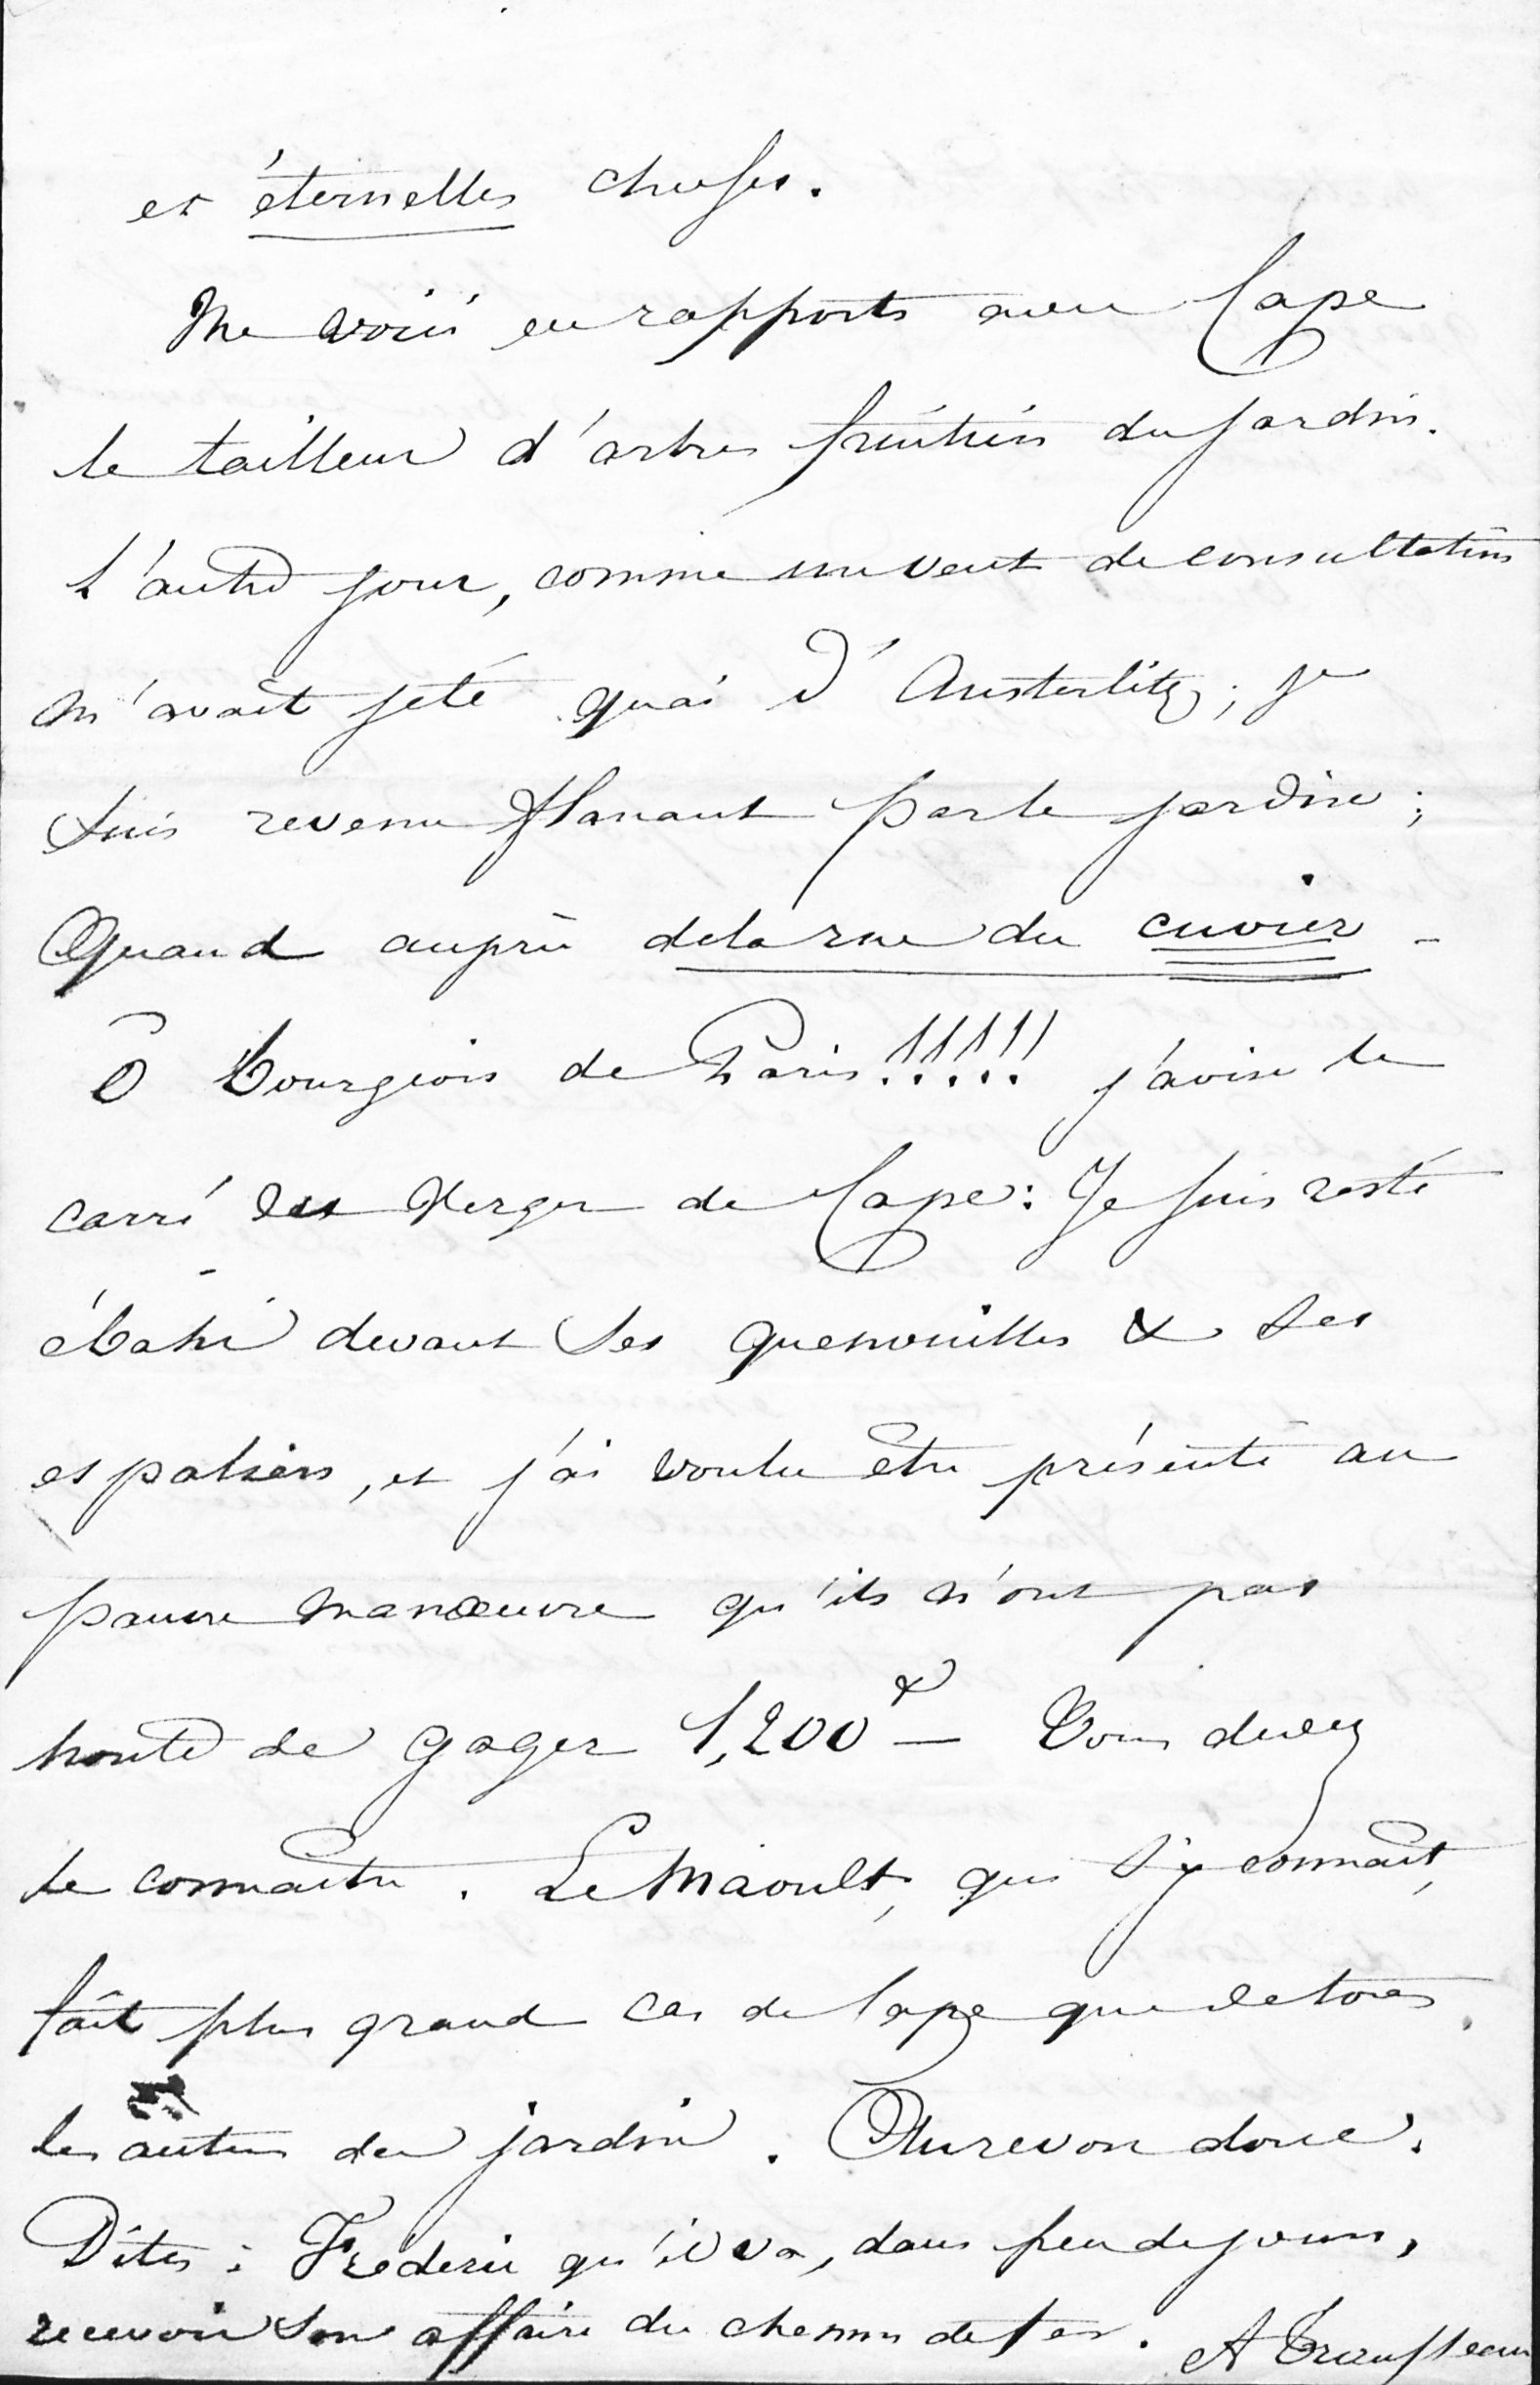 et éternelles choses.
Me voici en rapports avec Cape
le tailleur d'arbres fruitiers du jardin.
L'autre jour, comme un vent de consultations
m'avait jeté quai d'Austerlitz; je
suis revenu flanant par le jardin;
Quand auprès de la rue du cuvier -
Ô bourgeois de Paris!!!!! j'avise le
carré du verger de Cape: Je suis resté
ébahi devant ses quenouilles & ses
espaliers, et j'ai voulu être présenté au
pauvre manœuvre qu'ils n'ont pas
honte de gager 1,200 — Vous devez
le connaître. Le Maoult, qui s'y connait,
fait plus grand cas de Cape que de tous
les autres du jardin. Au revoir donc.
Dites à Frederic qu'il va, dans peu de jours,
recevoir son affaire du chemin de fer. A Trousseau